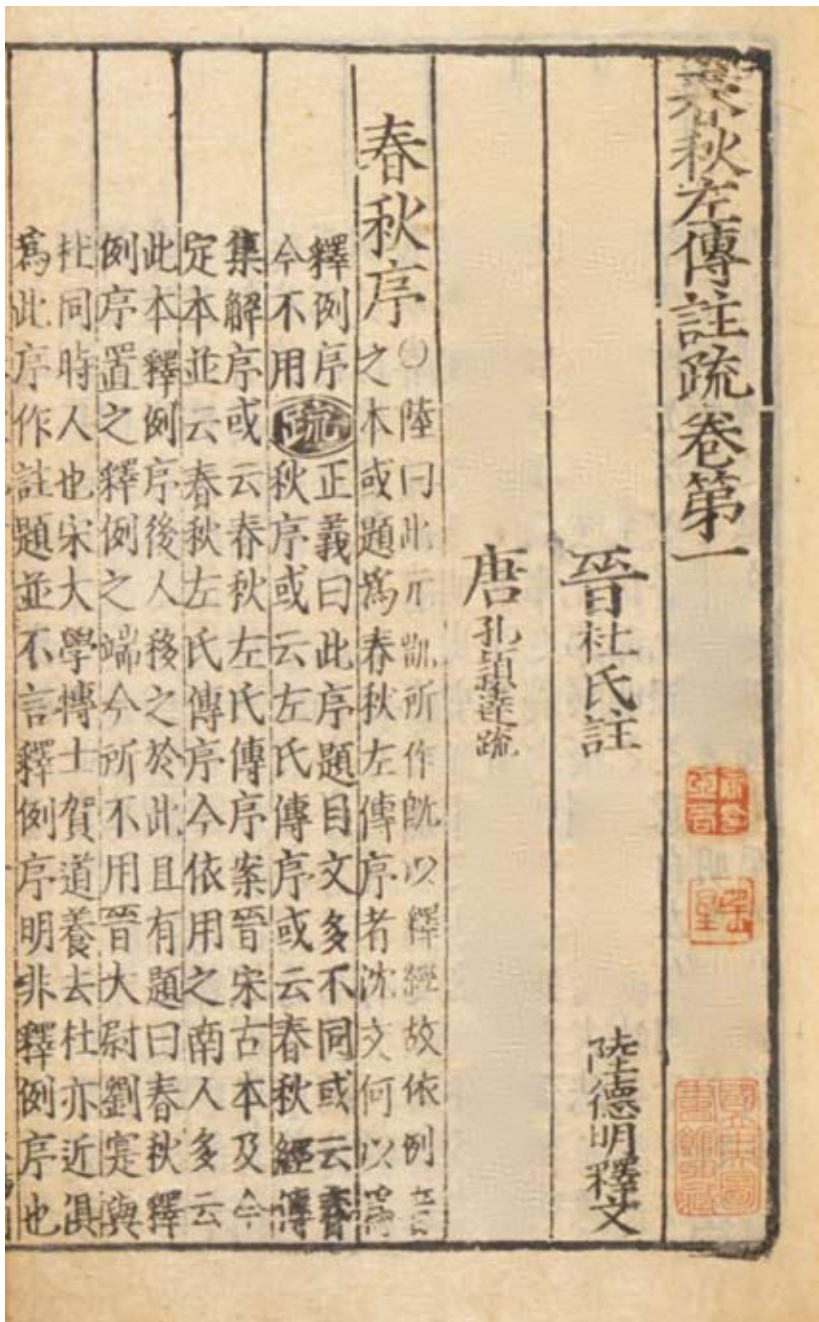 春秋左傳註疏卷第一
晉杜氏註
陸德明釋文
唐孔穎達疏
春秋序
○陸曰此元凱所作旣以釋經故依例音
之本或題爲春秋左傳序者沈文何以爲
釋例序
今不用
疏
正義曰此序題目文多不同或云春
秋序或云左氏傳序或云春秋經傳
集解序或云春秋左氏傳序案晉宋古本及今
定本並云春秋左氏傳序今依用之南人多云
此本釋例序後人移之於此且有題曰春秋釋
例序置之釋例之端今所不用晉大尉劉寔與
杜同時人也宋大學慱士賀道養去杜亦近俱
爲此序作註題並不言釋例序明非釋例序也